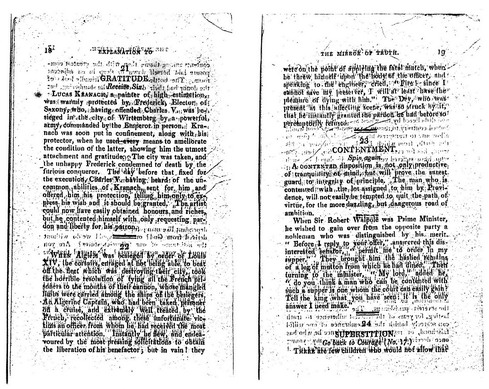 18 EXPLANATION TO
21
GRATITUDE.
Receive Six.
LUCAS KRANACH, a painter of high estimation,
was warmly protected by Frederick, Elector of
Saxony, who, having offended Charles V., was be-
sieged in the city of Wirtemberg by a powerful
army commanded by the Emperor in person. Kra-
nach was soon put in confinement, along with his
protector, when he used every means to ameliorate
the condition of the latter, showing him the utmost
attachment and gratitude. The city was taken, and
the unhappy Frederick condemned to death by the
furious conqueror. The day before that fixed for
the execution, Charles V., having heard of the un-
common abilities of Kranach, sent for him and
offered him his protection, telling him only to ex-
press his wish and it should be granted. The artist
could now have easily obtained honours and riches,
but he contented himself with only requesting par-
don and liberty for his patron.
22
WHEN Algiers was besieged by order of Louis
XIV., the corsairs, enraged at not being able to beat
off the fleet which was destroying their city, took
the horrible resolution of tying all the French pri-
soners to the months of their cannon, whose mangled
limbs were carried among the ships of the besiegers.
An Algerine Captain, who had been taken prisoner
on a cruise, and extremely well treated by the
French, recollected among these unfortunate vic-
tims an officer from whom he had received the most
particular attention. Instantly he flew, and endea-
voured by the most pressing solicitations to obtain
the liberation of his benefactor; but in vain! they
THE MIRROR OF TRUTH. 19
were on the point of applying the fatal match, when
he threw himself upon the body of the officer, and
speaking to the engineer, cried, "Fire! since I
cannot save my preserver, I will at least have the
pleasure of dying with him." The Dey, who was
present at this affecting scene, was so struck by it,
that he instantly granted the pardon he had before so
peremptorily refused.
23
CONTENTMENT.
Spin again.
A CONTENTED disposition is not only productive
of tranquillity of mind, but will prove the surest
guard to integrity of principle. The man who is
contented with the lot assigned to him by Provi-
dence, will not easily be tempted to quit the path of
virtue, for the more dazzling, but dangerous road of
ambition.
When Sir Robert Walpole was Prime Minister,
he wished to gain over from the opposite party a
nobleman who was distinguished by his merit.
"Before I reply to your offer," answered this dis-
interested senator, "permit me to order in my
supper." They brought him the hashed remains
of a leg of mutton from which he had dined. Then
turning to the minister, "My lord," added he,
"do you think a man who can be contented with
such a supper is one whom the court can easily gain?
Tell the king what you have seen: it is the only
answer I need make."
24
SUPERSTITION.
Go back to Courage (No. 17.)
THERE are few children who would not allow that